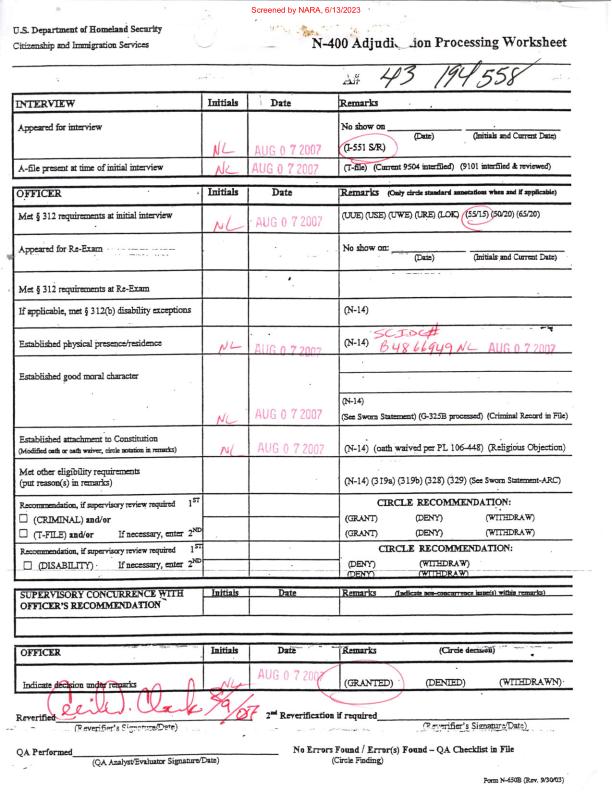 Screened by NARA, 6/13/2023
U.S. Department of Homeland Security
Citizenship and Immigration Services
N-400 Adjudi ion Processing Worksheet
A# 43 194 558
INTERVIEW Initials Date Remarks
Appeared for interview NL AUG 07 2007 No show on
(Date) (Initials and Current Date)
(I-551 S/R)
A-file present at time of initial interview NL AUG 07 2007 (T-file) (Current 9504 interfiled) (9101 interfiled & reviewed)
OFFICER Initials Date Remarks (Only circle standard annotations when and if applicable)
Met § 312 requirements at initial interview NL AUG 07 2007 (UUE) (USE) (UWE) (URE) (LOK) (55/15) (50/20) (65/20)
Appeared for Re-Exam No show on:
(Date) (Initials and Current Date)
Met § 312 requirements at Re-Exam
If applicable, met § 312(b) disability exceptions (N-14)
SCIDC#
Established physical presence/residence NL AUG 07 2007 (N-14) B4866949 NL AUG 07 2007
Established good moral character
(N-14)
NL AUG 07 2007 (See Sworn Statement) (G-325B processed) (Criminal Record in File)
Established attachment to Constitution NL AUG 07 2007 (N-14) (oath waived per PL 106-448) (Religious Objection)
(Modified oath or oath waiver, circle notation in remarks)
Met other eligibility requirements
(put reason(s) in remarks) (N-14) (319a) (319b) (328) (329) (See Sworn Statement-ARC)
Recommendation, if supervisory review required 1ST CIRCLE RECOMMENDATION:
☐ (CRIMINAL) and/or (GRANT) (DENY) (WITHDRAW)
☐ (T-FILE) and/or If necessary, enter 2ND (GRANT) (DENY) (WITHDRAW)
Recommendation, if supervisory review required 1ST CIRCLE RECOMMENDATION:
☐ (DISABILITY) If necessary, enter 2ND (DENY) (WITHDRAW)
(DENY) (WITHDRAW)
SUPERVISORY CONCURRENCE WITH Initials Date Remarks (Indicate non-concurrence issue(s) within remarks)
OFFICER'S RECOMMENDATION
OFFICER Initials Date Remarks (Circle decision)
Indicate decision under remarks NL AUG 07 2007 (GRANTED) (DENIED) (WITHDRAWN)
Reverified 8/9/07 2nd Reverification if required
(Reverifier's Signature/Date) (Reverifier's Signature/Date)
QA Performed No Errors Found / Error(s) Found – QA Checklist in File
(QA Analyst/Evaluator Signature/Date) (Circle Finding)
Form N-650B (Rev. 9/30/03)